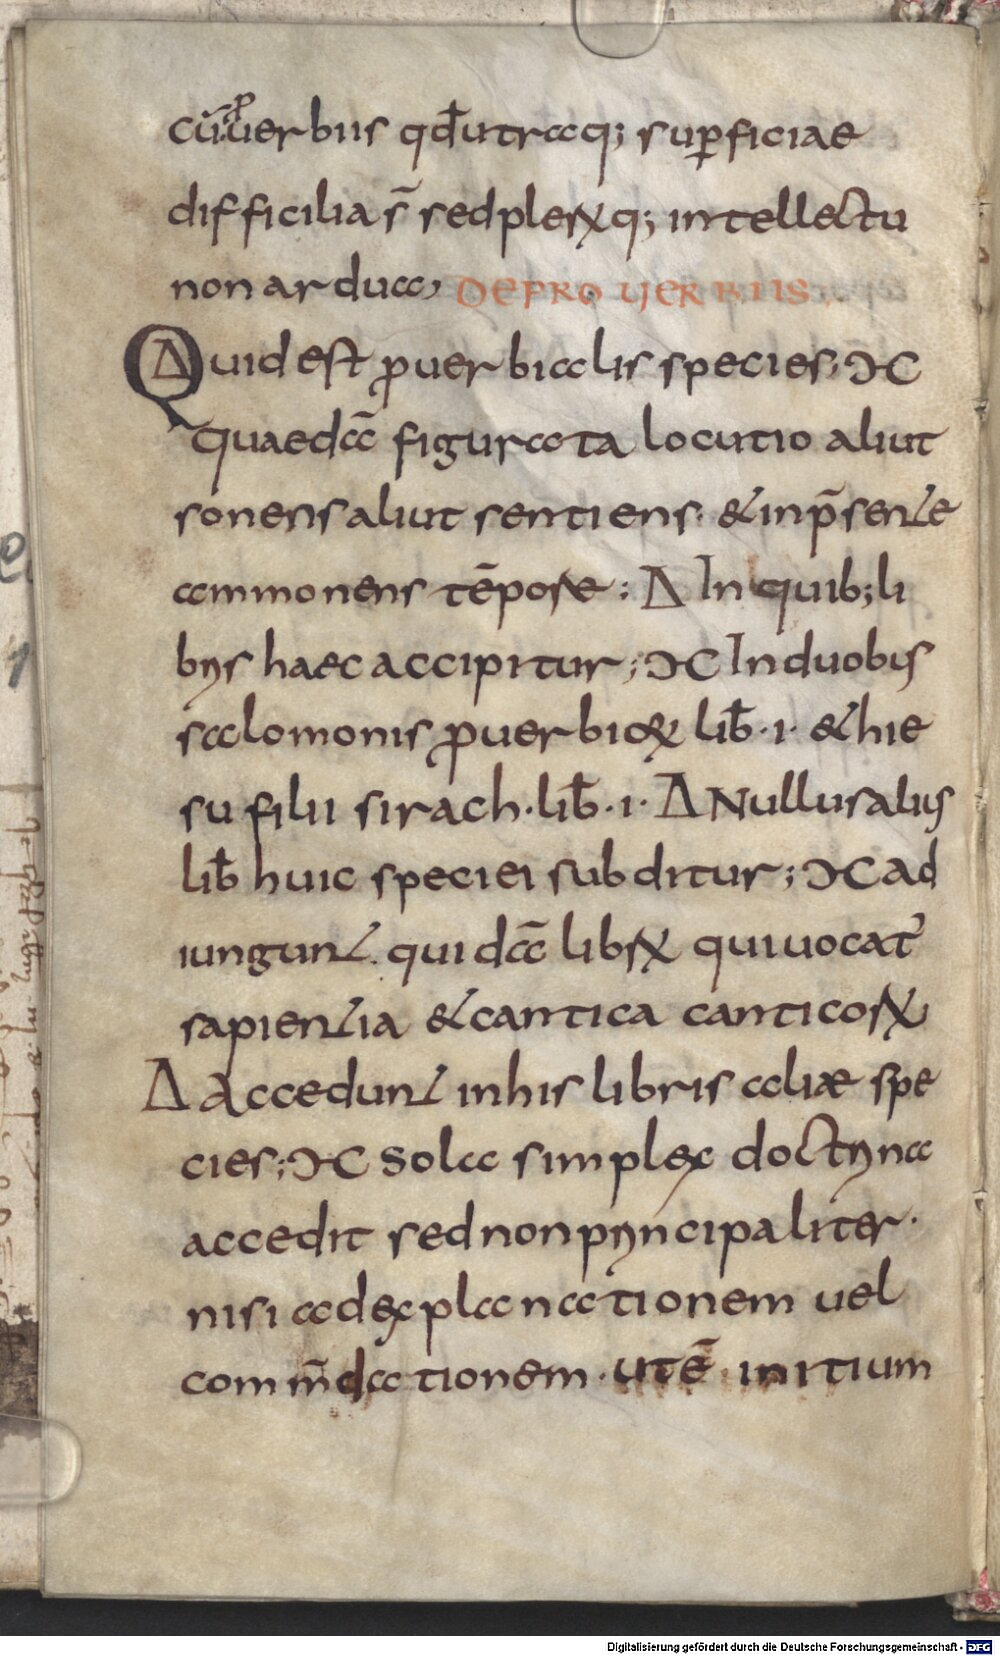 cū ꝓuerbiis qđ utraq; suꝑficiae
difficilia s̄ sed plerꝝq; intellectu
non ardua, DE PROUERBIIS.
Δ Quid est ꝓuerbialis species; ΜC
quaedā figurata locutio aliut
sonens aliut sentiens. & inp̄sente
ammonens tēpore; Δ In quib; li
bris haec accipitur; ΜC In duobus
salomonis ꝓuerbioꝝ lib̄ ·i· & hie
su filii sirach · lib̄ · i · Δ Nullus alius
lib̄ huic speciei subditur; ΜC Ad
iungunt quidā librꝝ qui uocat̄
sapientia & cantica canticorꝝ
Δ Accedunt in his libris aliae spe
cies; ΜC Sola simplex doctrina
accedit sed non principaliter ·
nisi ad explanationem uel
comm̄dationem · ut ē initium
Digitalisierung gefördert durch die Deutsche Forschungsgemeinschaft - DFG